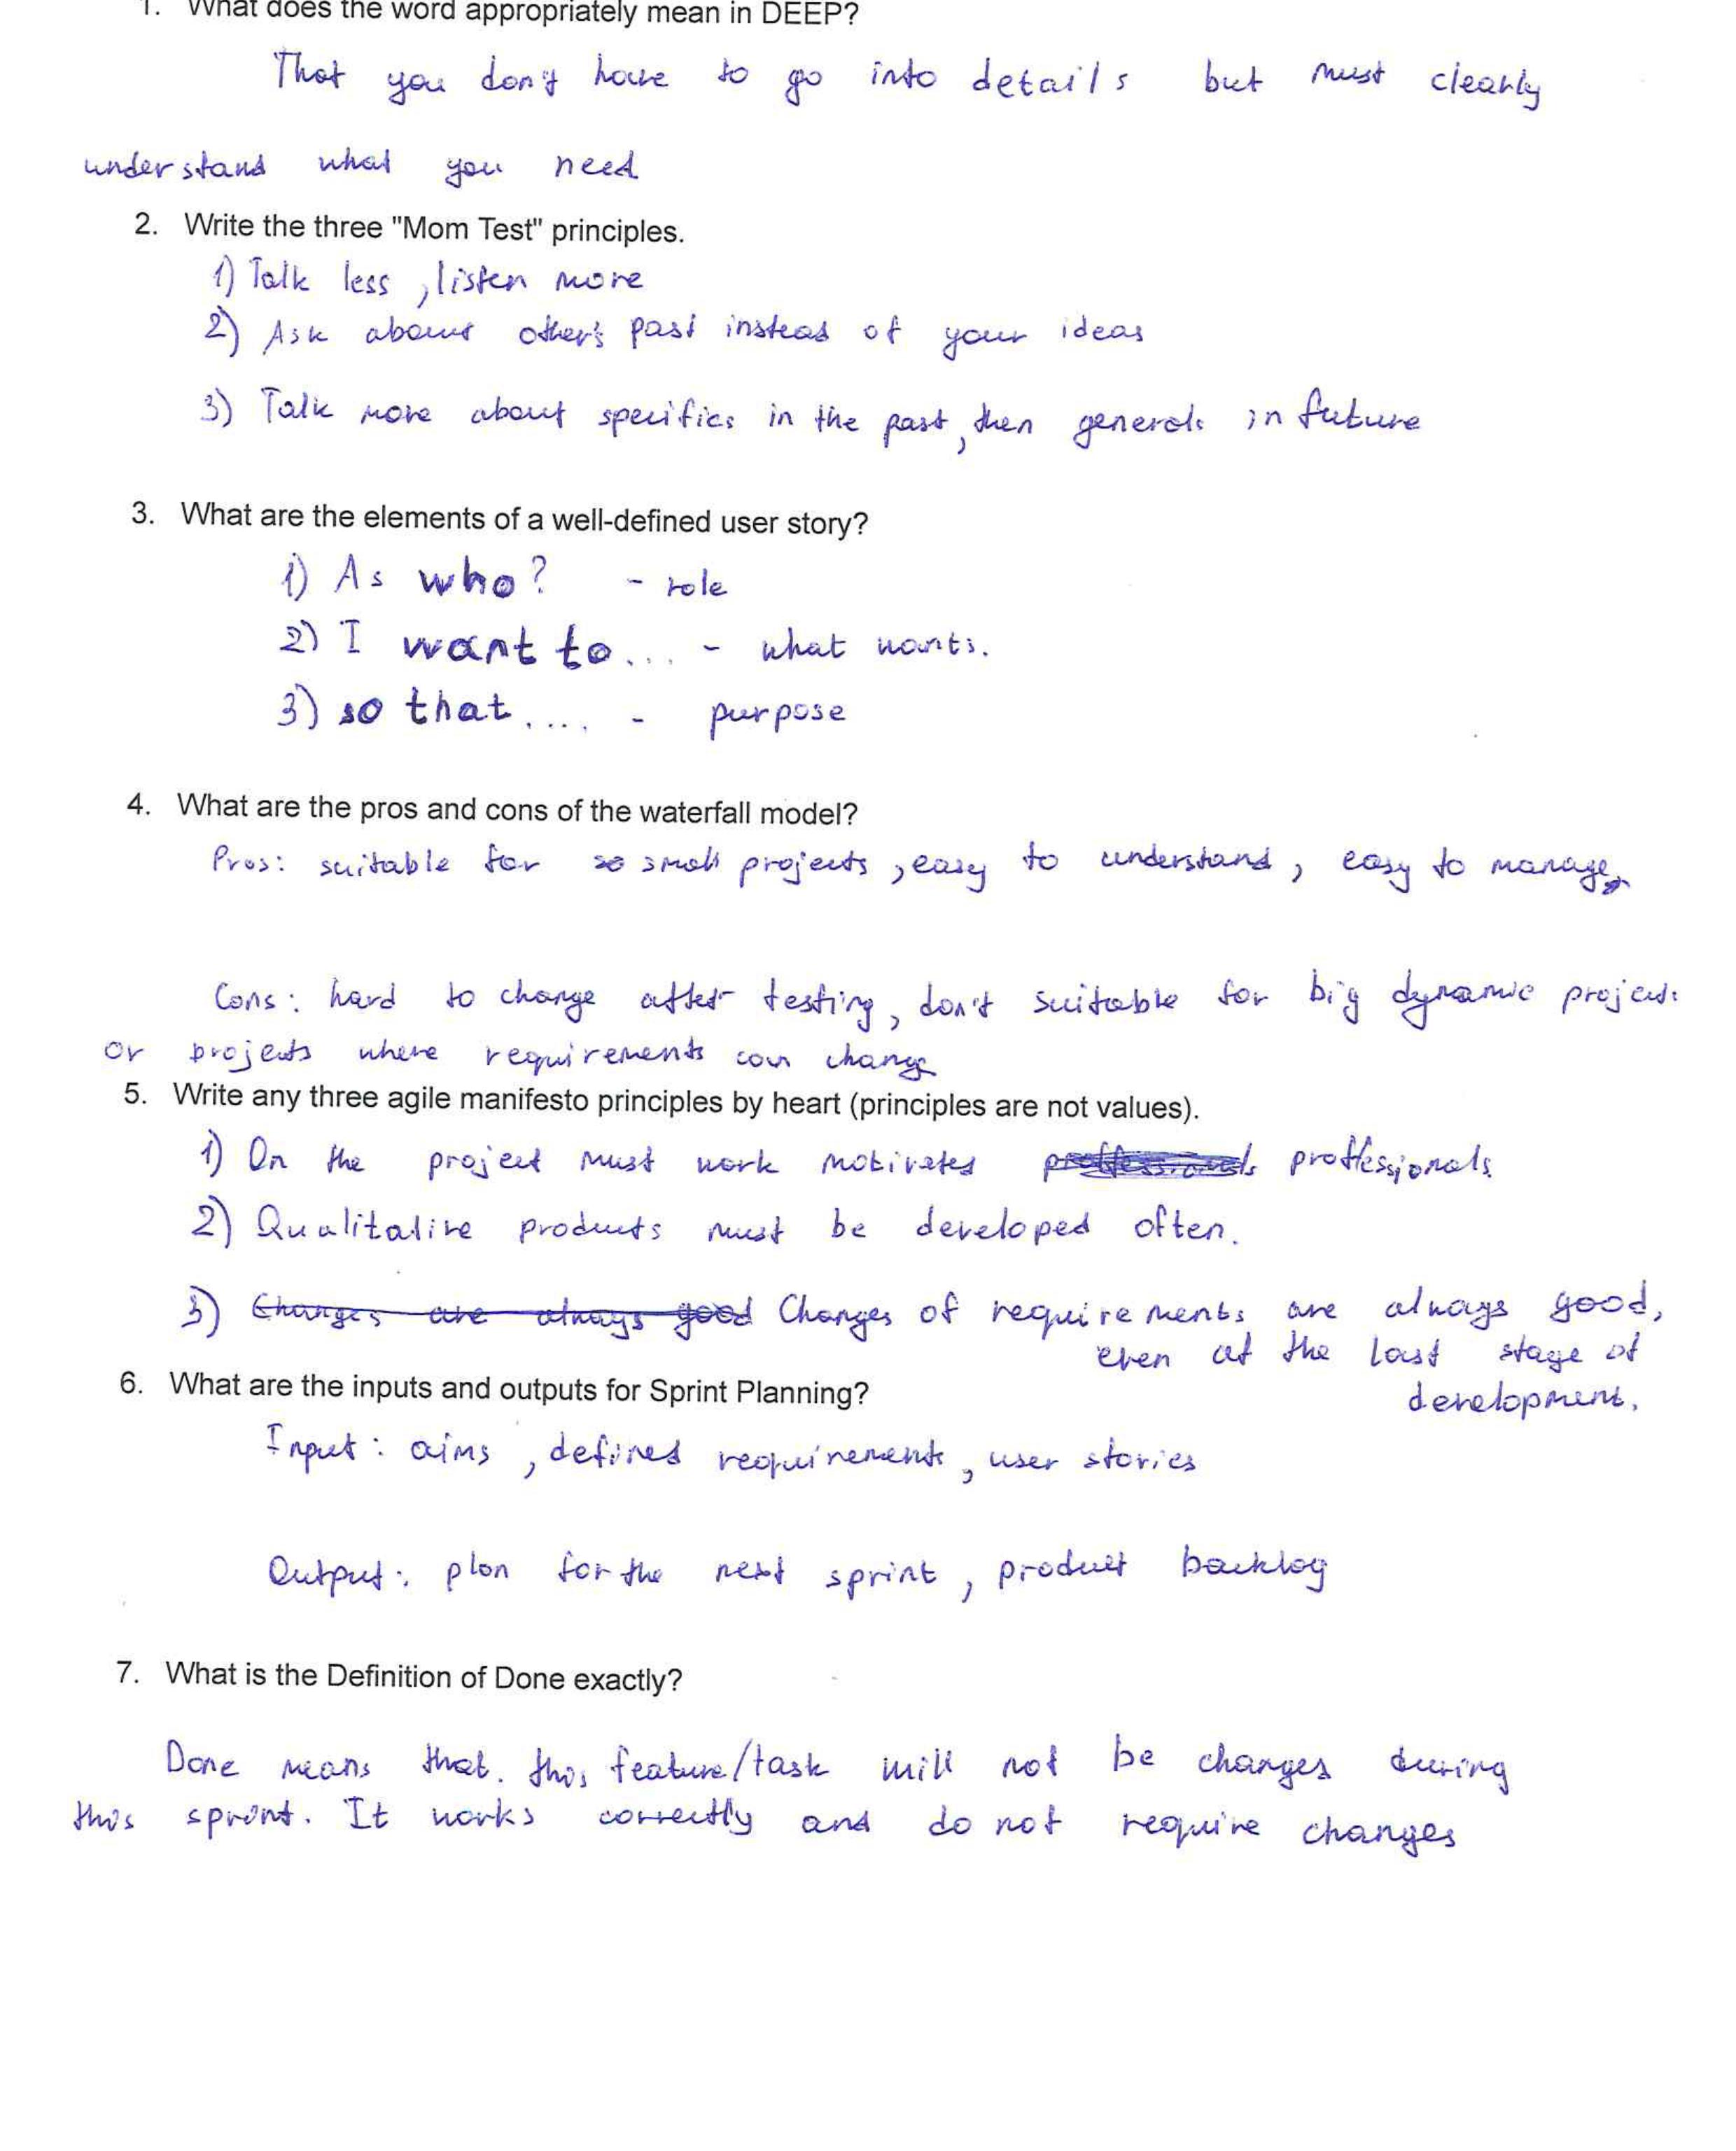 1. What does the word appropriately mean in DEEP?
That you don't have to go into details but must clearly
understand what you need
2. Write the three "Mom Test" principles.
1) Talk less, listen more
2) Ask about other's past instead of your ideas
3) Talk more about specifics in the past, then generals in future
3. What are the elements of a well-defined user story?
1) As who? - role
2) I want to... - what wants.
3) so that.... - purpose
4. What are the pros and cons of the waterfall model?
Pros: suitable for so small projects, easy to understand, easy to manage
Cons: hard to change after testing, don't suitable for big dynamic projects
or projects where requirements can change
5. Write any three agile manifesto principles by heart (principles are not values).
1) On the project must work motivated proffessionals
2) Qualitative products must be developed often.
3) Changes are always good Changes of requirements are always good,
even at the last stage of
6. What are the inputs and outputs for Sprint Planning?
development.
Input: aims, defined requirements, user stories
Output: plan for the next sprint, product backlog
7. What is the Definition of Done exactly?
Done means that. this feature/task will not be changes during
this sprint. It works correctly and do not require changes